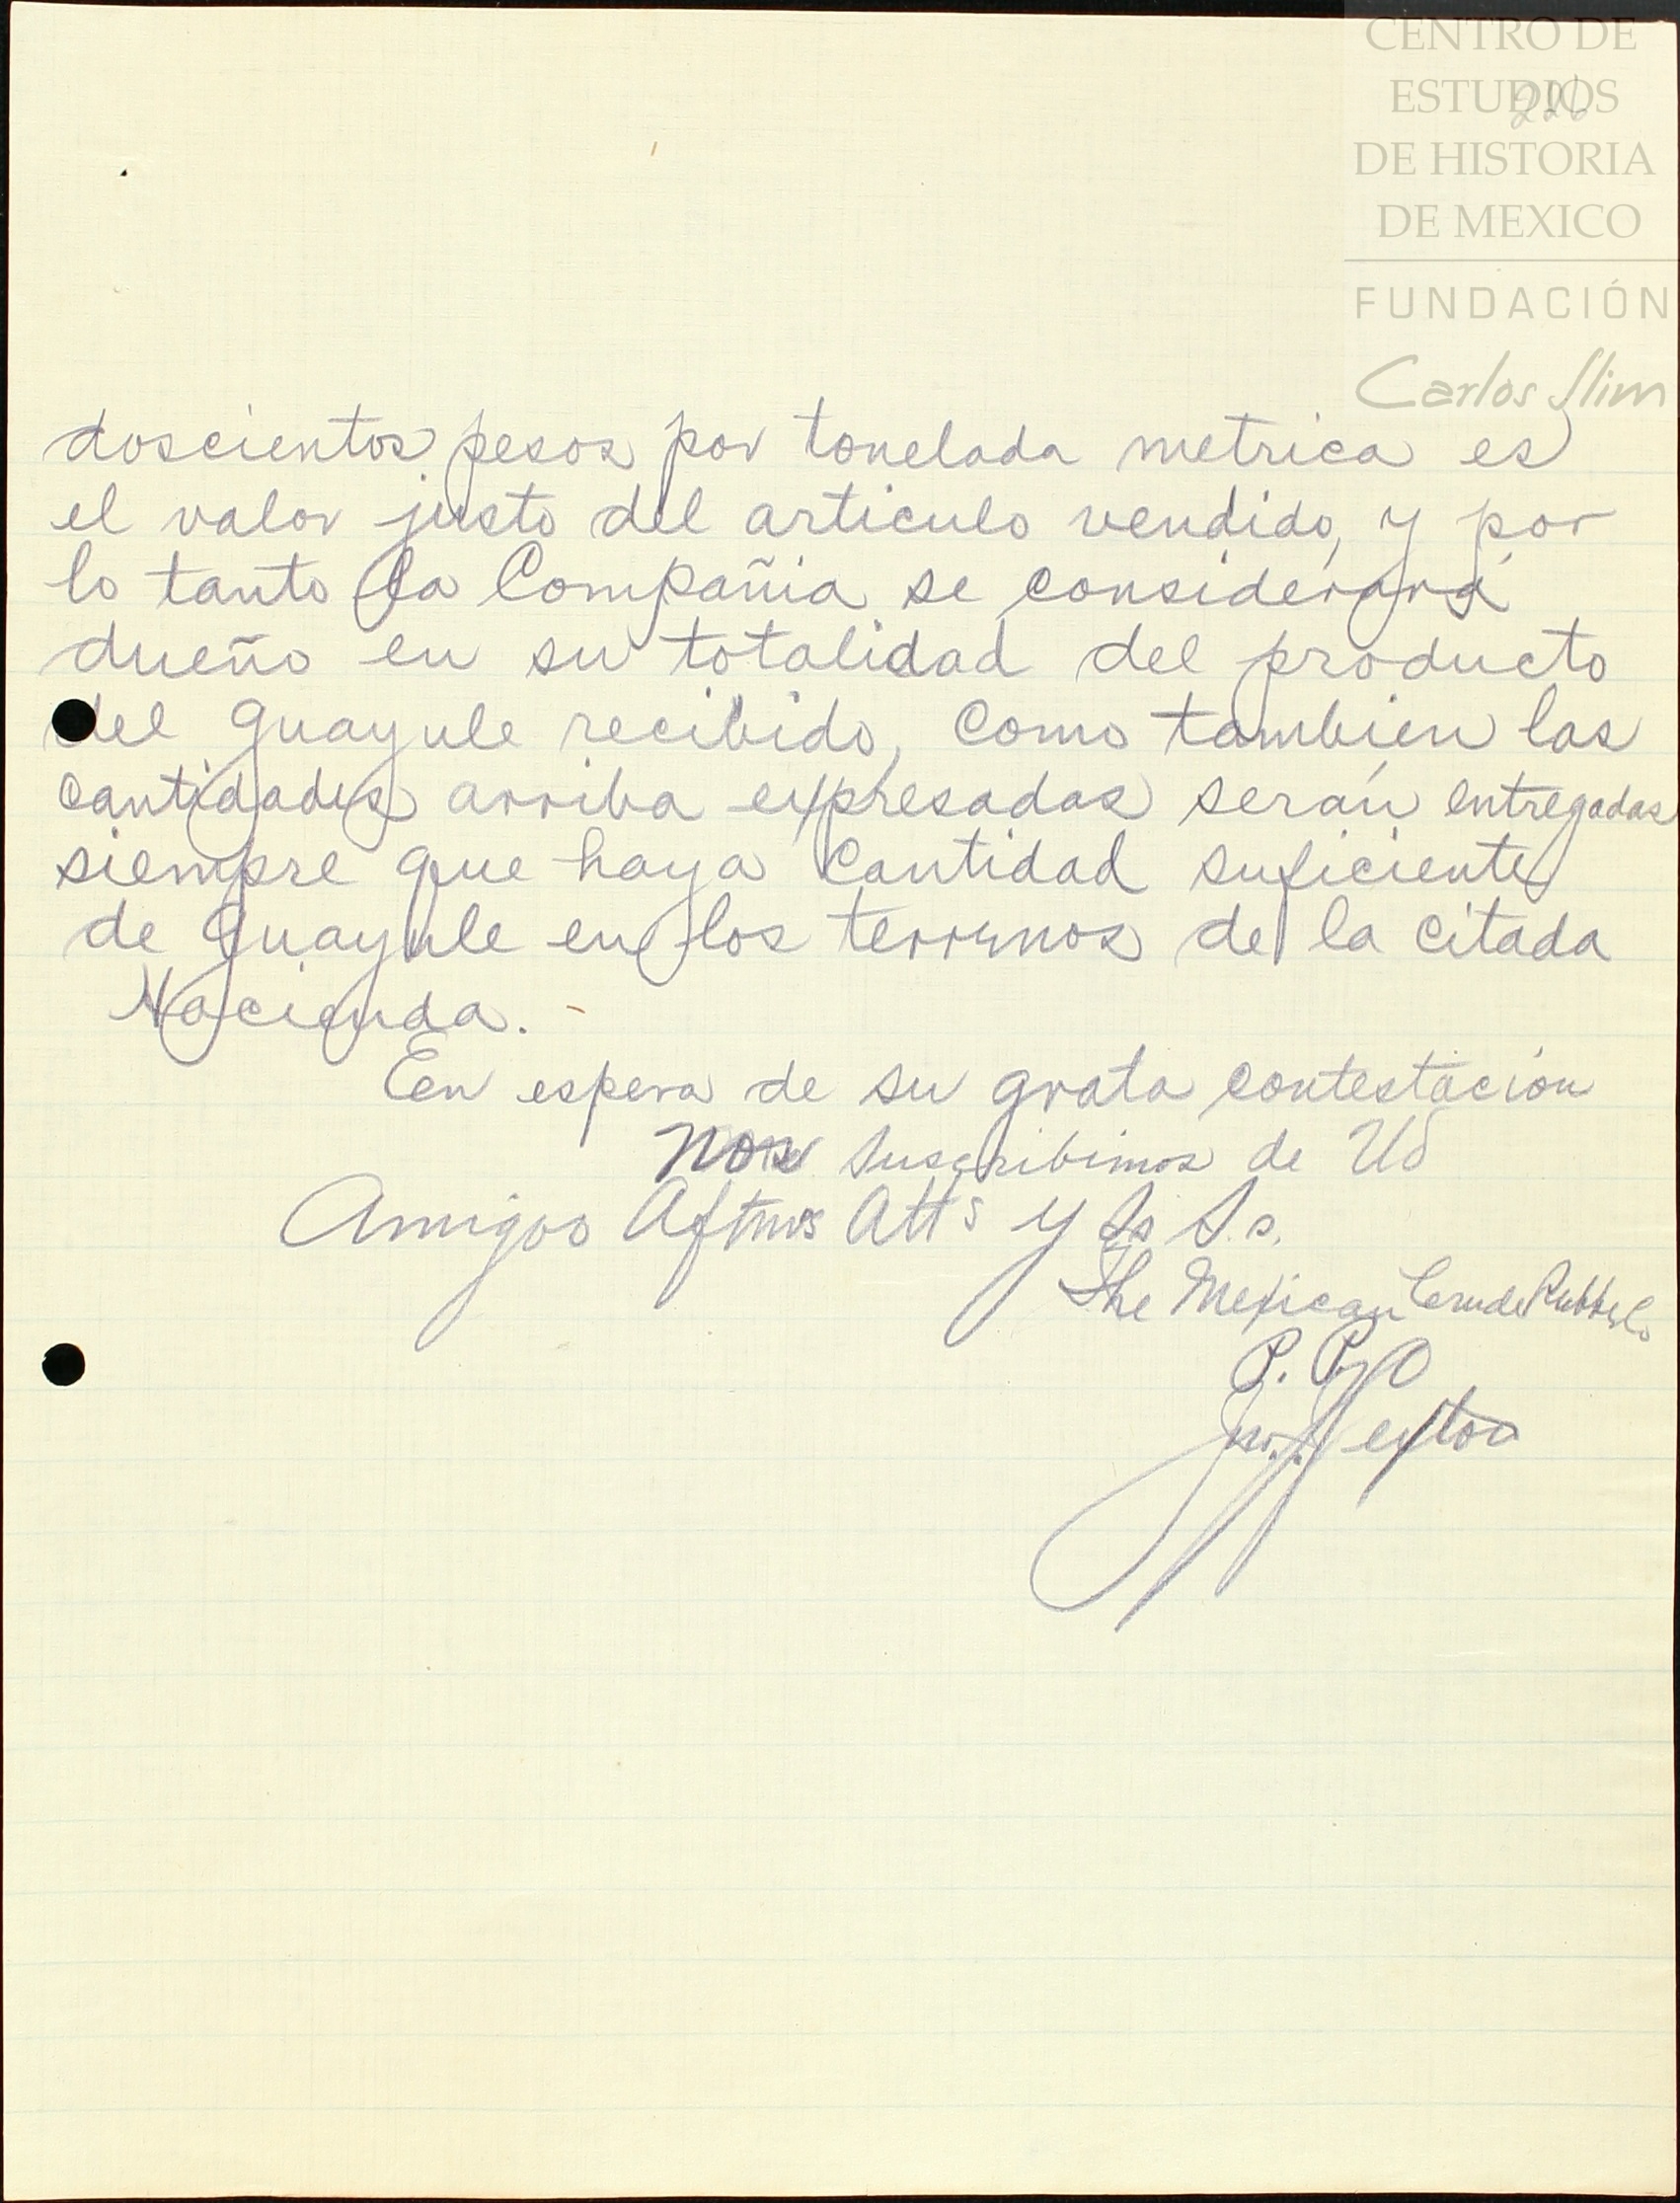 CENTRO DE
ESTUDIOS
226
DE HISTORIA
DE MEXICO
FUNDACIÓN
Carlos Slim
doscientos pesos por tonelada metrica es
el valor justo del articulo vendido, y por
lo tanto la Compañia se considerará
dueño en su totalidad del producto
del guayule recibido, como tambien las
cantidades arriba expresadas serán entregadas
siempre que haya cantidad suficiente
de guayule en los terrenos de la citada
Hacienda.
En espera de su grata contestación
nos suscribimos de Ud
Amigos Aftmos Atts y Ss Ss.
The Mexican Crude Rubber Co
P. P.